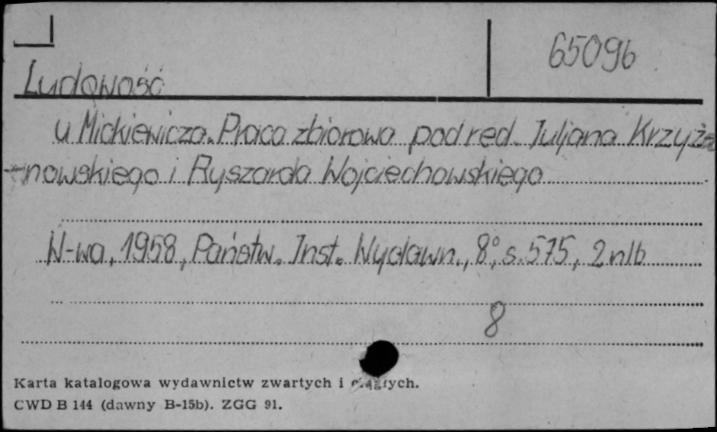 65096
Ludowość
u Mickiewicza. Praca zbiorowa pod red. Juljana Krzyża
-nowskiego i Ryszarda Wojciechowskiego
W-wa, 1958, Państw. Inst. Wydawn., 8°, s. 575, 2 nlb
8
Karta katalogowa wydawnictw zwartych i ciągłych.
CWD B 144 (dawny B-15b). ZGG 91.